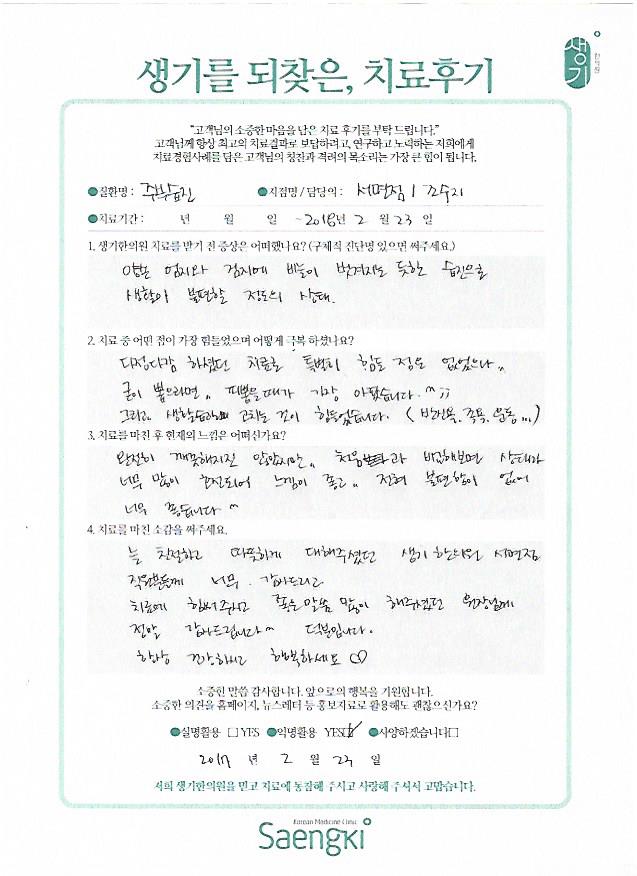 생기를 되찾은, 치료후기
생기
한의원
"고객님의 소중한 마음을 담은 치료 후기를 부탁 드립니다."
고객님께 항상 최고의 치료결과로 보답하려고, 연구하고 노력하는 저희에게
치료경험사례를 담은 고객님의 칭찬과 격려의 목소리는 가장 큰 힘이 됩니다.
질환명 : 주부습진 지점명 / 담당의 : 서면점 /
치료기간 : 년 월 일 ~ 2018년 2 월 23 일
1. 생기한의원 치료를 받기 전 증상은 어떠했나요? (구체적 진단명 있으면 써주세요.)
양손 엄지와 검지에 비늘이 벗겨지는 듯한 습진으로
생활이 불편할 정도의 상태.
2. 치료 중 어떤 점이 가장 힘들었으며 어떻게 극복 하셨나요?
다정다감 하셨던 치료로 특별히 힘든 점은 없었으나..
굳이 뽑으라면.. 피뽑을때가 가장 아팠습니다.^^;;
그리고 생활습관 고치는 것이 힘들었습니다. ( 반신욕, 족욕, 운동...)
3. 치료를 마친 후 현재의 느낌은 어떠신가요?
완전히 깨끗해지진 않았지만.. 처음과 비교해보면 상태가
너무 많이 호전되어 느낌이 좋고.. 전혀 불편함이 없어
너무 좋습니다 ^^
4. 치료를 마친 소감을 써주세요.
늘 친절하고 따뜻하게 대해주셨던 생기한의원 서면점
직원분들께 너무 감사드리고
치료에 힘써주시고 좋은말씀 많이 해주셨던 원장님께
정말 감사드립니다^^ 덕분입니다.
항상 건강하시고 행복하세요 ♡
소중한 말씀 감사합니다. 앞으로의 행복을 기원합니다.
소중한 의견을 홈페이지, 뉴스레터 등 홍보자료로 활용해도 괜찮으신가요?
실명활용 □ YES 익명활용 YES☑ 사양하겠습니다□
2017 년 2 월 23 일
저희 생기한의원을 믿고 치료에 동참해 주시고 사랑해 주셔서 고맙습니다.
Korean Medicine Clinic
Saengki